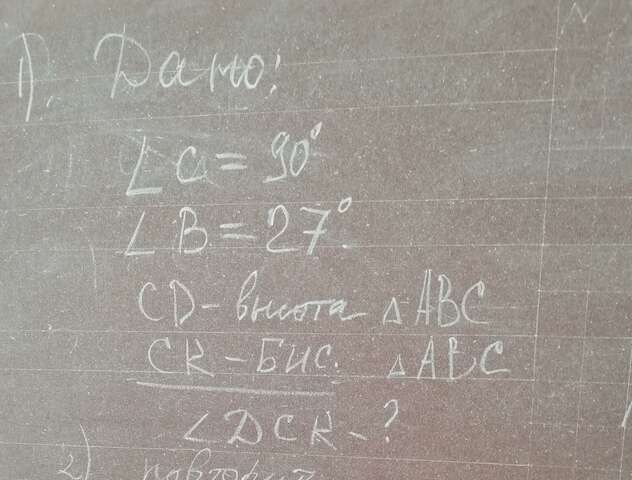 1). Дано:
∠C = 90°
∠B = 27°
CD - высота △ABC
CK - Бис. △ABC
∠DCK - ?
2) повторит